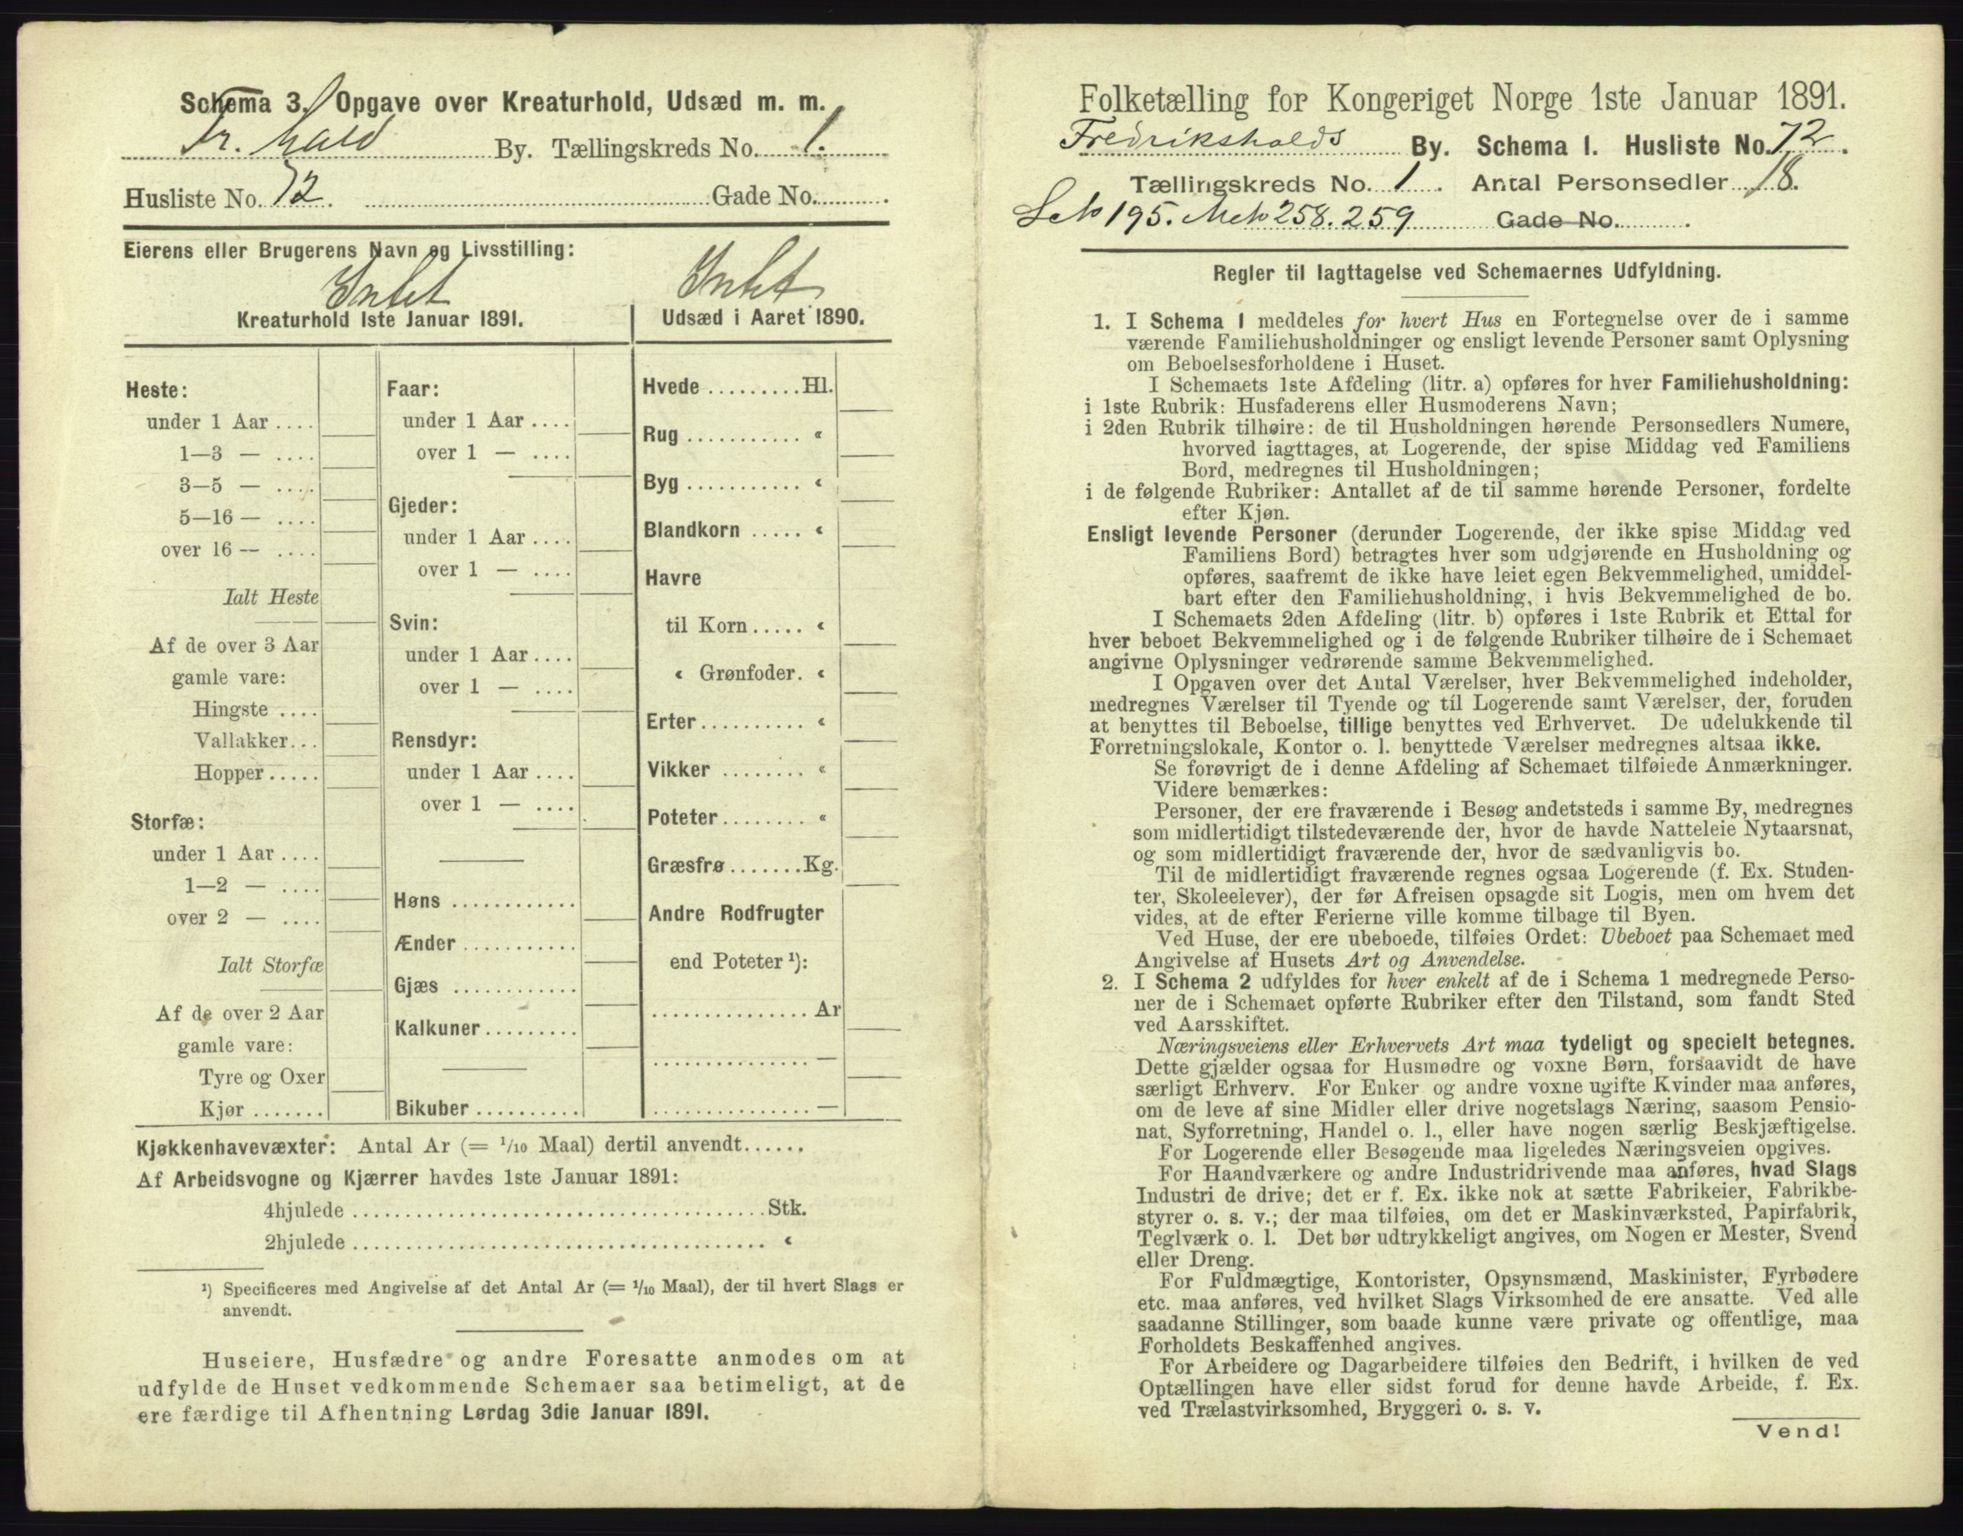 Schema 3. Opgave over Kreaturhold, Udsæd m. m.
Fr. hald By. Tællingskreds No. 1.
Husliste No. 72. Gade No.
Eierens eller Brugerens Navn og Livsstilling:
Intet Intet
Kreaturhold 1ste Januar 1891.
Heste:
under 1 Aar ....
1—3 — ....
3—5 — ....
5—16 — ....
over 16 — ....
Ialt Heste
Af de over 3 Aar
gamle vare:
Hingste ....
Vallakker...
Hopper.....
Storfæ:
under 1 Aar ....
1—2 — ....
over 2 — ....
Ialt Storfæ
Af de over 2 Aar
gamle vare:
Tyre og Oxer
Kjør .......
Faar:
under 1 Aar ....
over 1 — ....
Gjeder:
under 1 Aar ....
over 1 — ....
Svin:
under 1 Aar ....
over 1 — ....
Rensdyr:
under 1 Aar ....
over 1 — ....
Høns ............
Ænder ...........
Gjæs ............
Kalkuner.........
Bikuber ..........
Udsæd i Aaret 1890.
Hvede .........Hl.
Rug ........... «
Byg ........... «
Blandkorn ..... «
Havre
til Korn..... «
« Grønfoder. «
Erter.......... «
Vikker ........ «
Poteter........ «
Græsfrø .......Kg.
Andre Rodfrugter
end Poteter ¹):
............... Ar
............... —
............... —
Kjøkkenhavevæxter: Antal Ar (= 1/10 Maal) dertil anvendt......
Af Arbeidsvogne og Kjærrer havdes 1ste Januar 1891:
4hjulede ........................................Stk.
2hjulede ........................................ «
¹) Specificeres med Angivelse af det Antal Ar (= 1/10 Maal), der til hvert Slags er
anvendt.
Huseiere, Husfædre og andre Foresatte anmodes om at
udfylde de Huset vedkommende Schemaer saa betimeligt, at de
ere færdige til Afhentning Lørdag 3die Januar 1891.
Folketælling for Kongeriget Norge 1ste Januar 1891.
Fredrikshalds By. Schema 1. Husliste No. 72.
Tællingskreds No. 1. Antal Personsedler 18.
195. 258. 259 Gade No. .
Regler til Iagttagelse ved Schemaernes Udfyldning.
1. I Schema 1 meddeles for hvert Hus en Fortegnelse over de i samme
værende Familiehusholdninger og ensligt levende Personer samt Oplysning
om Beboelsesforholdene i Huset.
I Schemaets 1ste Afdeling (litr. a) opføres for hver Familiehusholdning:
i 1ste Rubrik: Husfaderens eller Husmoderens Navn;
i 2den Rubrik tilhøire: de til Husholdningen hørende Personsedlers Numere,
hvorved iagttages, at Logerende, der spise Middag ved Familiens
Bord, medregnes til Husholdningen;
i de følgende Rubriker: Antallet af de til samme hørende Personer, fordelte
efter Kjøn.
Ensligt levende Personer (derunder Logerende, der ikke spise Middag ved
Familiens Bord) betragtes hver som udgjørende en Husholdning og
opføres, saafremt de ikke have leiet egen Bekvemmelighed, umiddel-
bart efter den Familiehusholdning, i hvis Bekvemmelighed de bo.
I Schemaets 2den Afdeling (litr. b) opføres i 1ste Rubrik et Ettal for
hver beboet Bekvemmelighed og i de følgende Rubriker tilhøire de i Schemaet
angivne Oplysninger vedrørende samme Bekvemmelighed.
I Opgaven over det Antal Værelser, hver Bekvemmelighed indeholder,
medregnes Værelser til Tyende og til Logerende samt Værelser, der, foruden
at benyttes til Beboelse, tillige benyttes ved Erhvervet. De udelukkende til
Forretningslokale, Kontor o. l. benyttede Værelser medregnes altsaa ikke.
Se forøvrigt de i denne Afdeling af Schemaet tilføiede Anmærkninger.
Videre bemærkes:
Personer, der ere fraværende i Besøg andetsteds i samme By, medregnes
som midlertidigt tilstedeværende der, hvor de havde Natteleie Nytaarsnat,
og som midlertidigt fraværende der, hvor de sædvanligvis bo.
Til de midlertidigt fraværende regnes ogsaa Logerende (f. Ex. Studen-
ter, Skoleelever), der før Afreisen opsagde sit Logis, men om hvem det
vides, at de efter Ferierne ville komme tilbage til Byen.
Ved Huse, der ere ubeboede, tilføies Ordet: Ubeboet paa Schemaet med
Angivelse af Husets Art og Anvendelse.
2. I Schema 2 udfyldes for hver enkelt af de i Schema 1 medregnede Perso-
ner de i Schemaet opførte Rubriker efter den Tilstand, som fandt Sted
ved Aarsskiftet.
Næringsveiens eller Erhvervets Art maa tydeligt og specielt betegnes.
Dette gjælder ogsaa for Husmødre og voxne Børn, forsaavidt de have
særligt Erhverv. For Enker og andre voxne ugifte Kvinder maa anføres,
om de leve af sine Midler eller drive nogetslags Næring, saasom Pensio-
nat, Syforretning, Handel o. l., eller have nogen særlig Beskjæftigelse.
For Logerende eller Besøgende maa ligeledes Næringsveien opgives.
For Haandværkere og andre Industridrivende maa anføres, hvad Slags
Industri de drive; det er f. Ex. ikke nok at sætte Fabrikeier, Fabrikbe-
styrer o. s. v.; der maa tilføies, om det er Maskinværksted, Papirfabrik,
Teglværk o. l. Det bør udtrykkeligt angives, om Nogen er Mester, Svend
eller Dreng.
For Fuldmægtige, Kontorister, Opsynsmænd, Maskinister, Fyrbødere
etc. maa anføres, ved hvilket Slags Virksomhed de ere ansatte. Ved alle
saadanne Stillinger, som baade kunne være private og offentlige, maa
Forholdets Beskaffenhed angives.
For Arbeidere og Dagarbeidere tilføies den Bedrift, i hvilken de ved
Optællingen have eller sidst forud for denne havde Arbeide, f. Ex.
ved Trælastvirksomhed, Bryggeri o. s. v.
Vend!